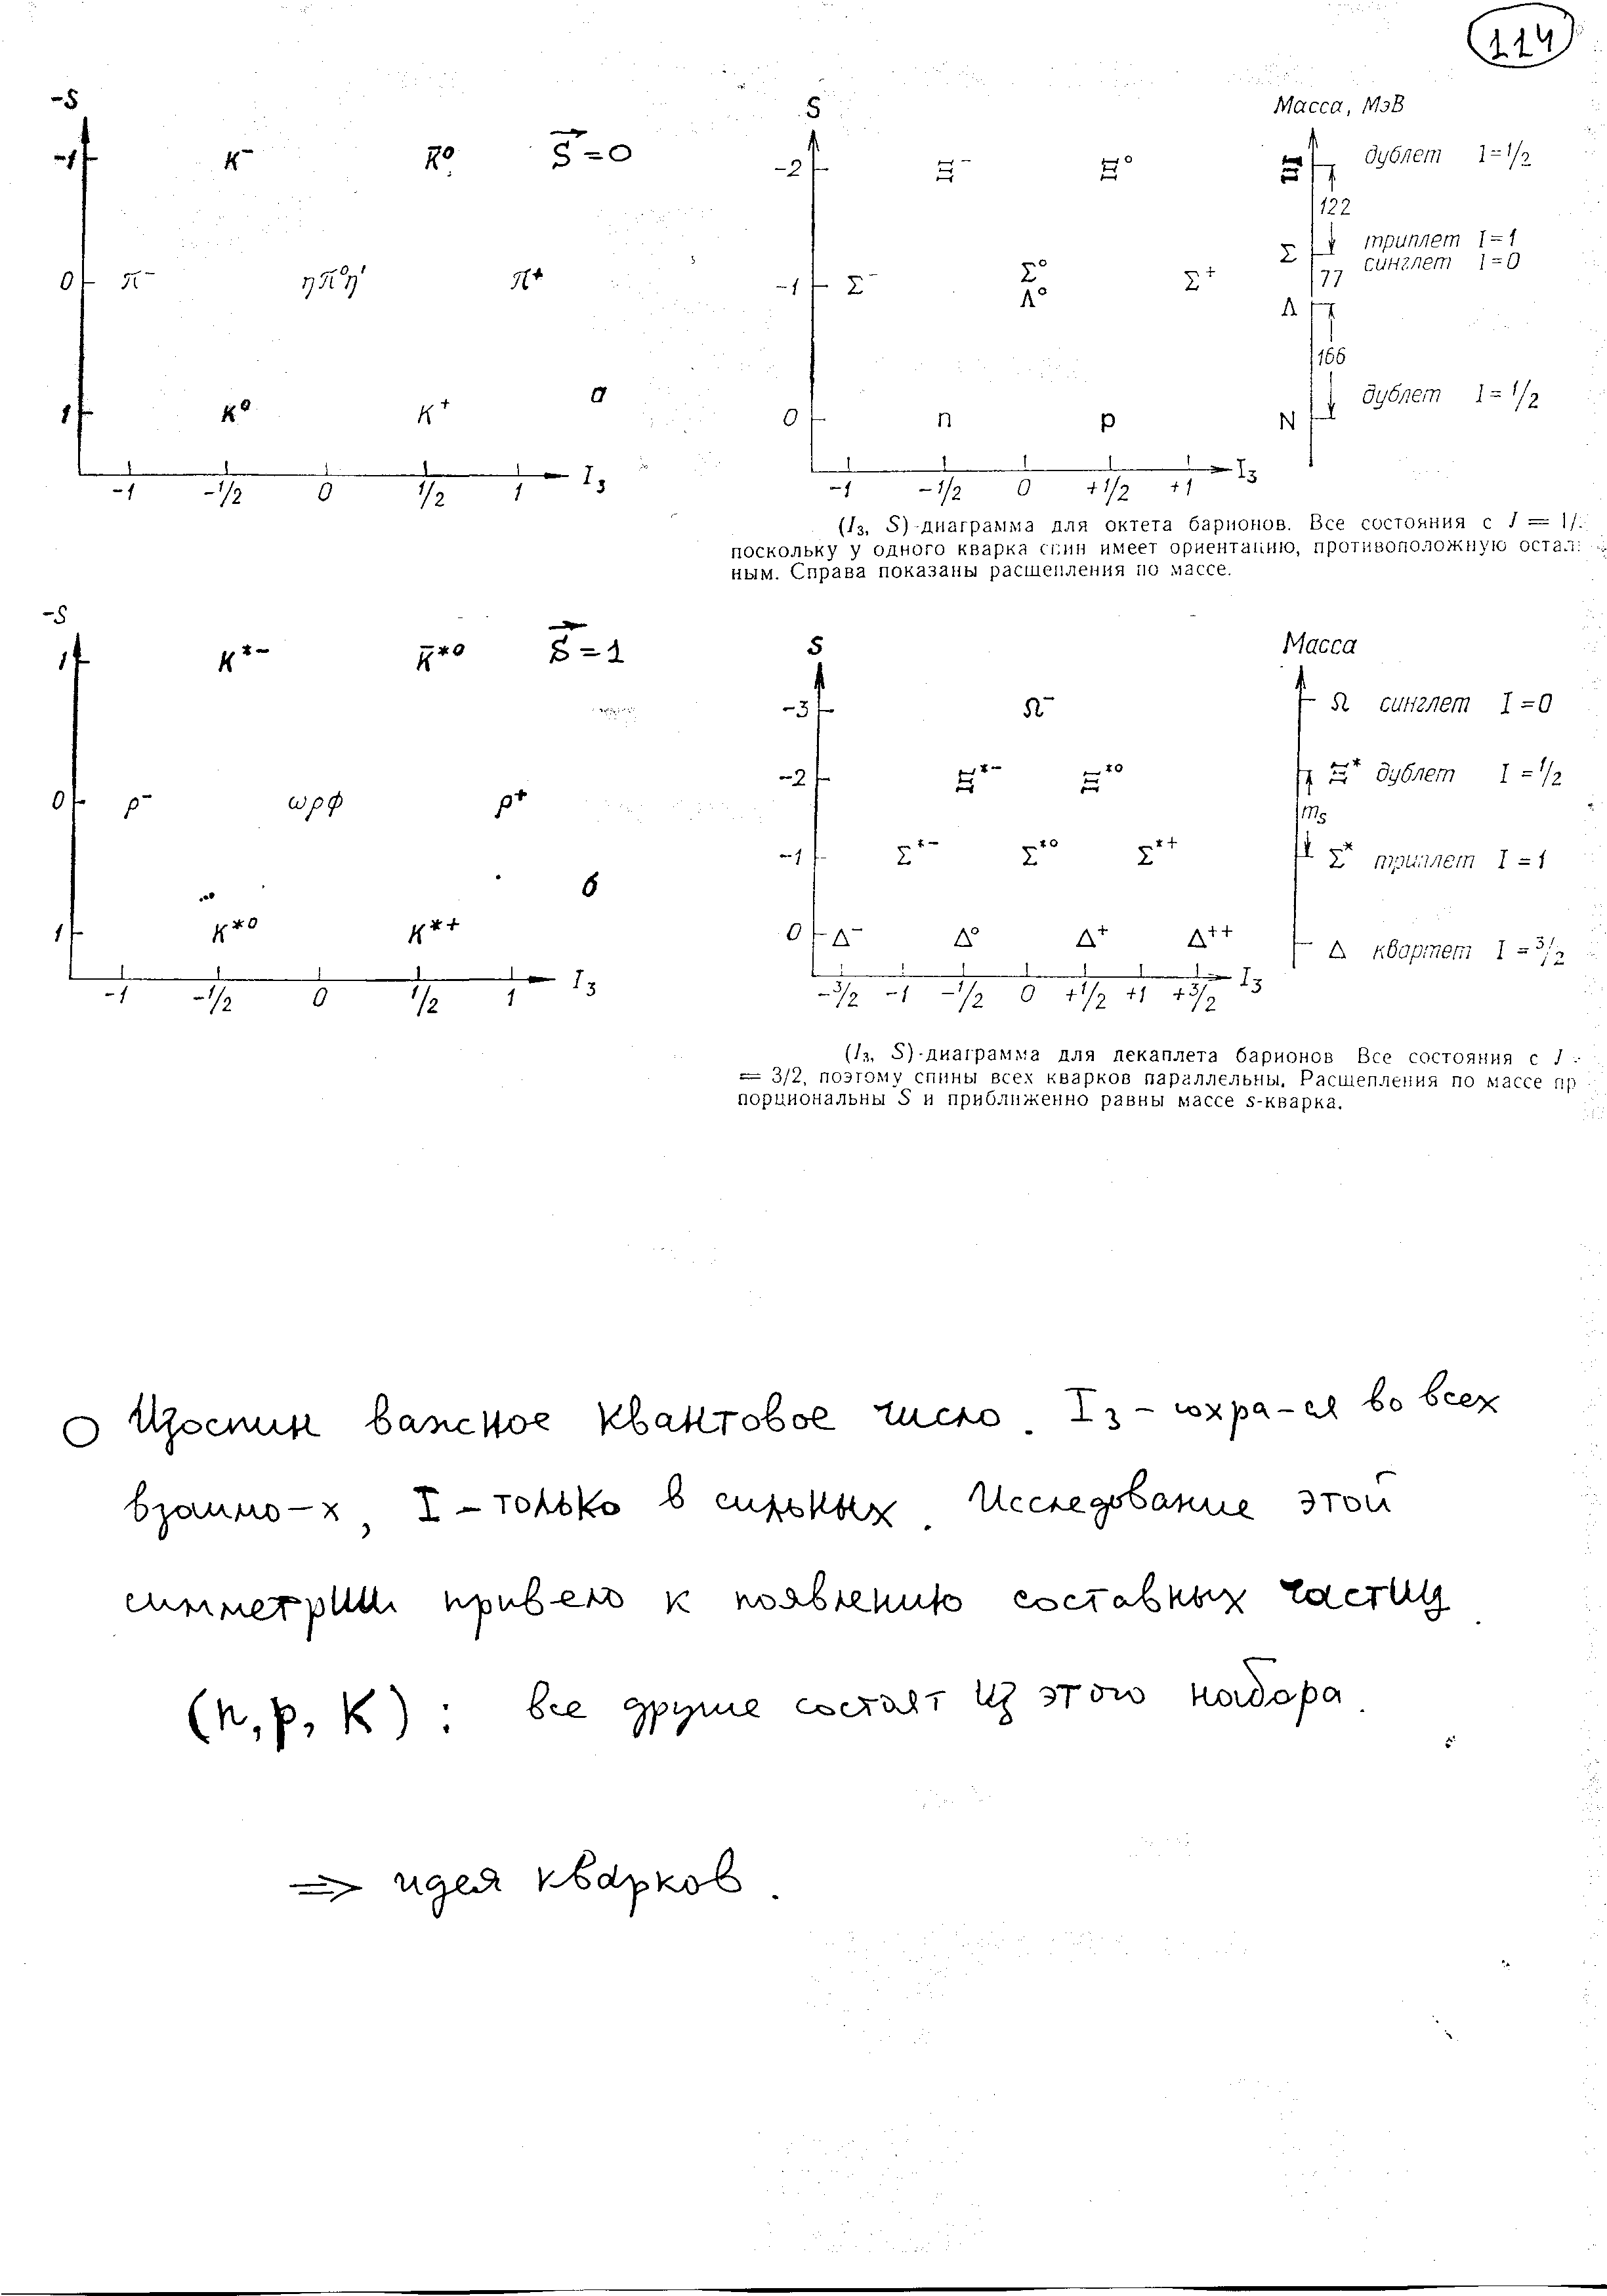 114
-S
-1 K⁻ K̄⁰ S⃗ = 0
0 π⁻ ηπ⁰η' π⁺
1 K⁰ K⁺ а
-1 -1/2 0 1/2 1 I₃
S
-2 Ξ⁻ Ξ⁰
-1 Σ⁻ Σ⁰ Σ⁺
Λ⁰
0 n p
-1 -1/2 0 +1/2 +1 I₃
Масса, МэВ
Ξ дублет I=1/2
122
Σ триплет I=1
синглет I=0
77
Λ
166
N дублет I=1/2
(I₃, S)-диаграмма для октета барионов. Все состояния с J = 1/
поскольку у одного кварка спин имеет ориентацию, противоположную остал
ным. Справа показаны расщепления по массе.
-S
1 K*⁻ K̄*⁰ S⃗ = 1
0 ρ⁻ ωρφ ρ⁺
б
1 K*⁰ K*⁺
-1 -1/2 0 1/2 1 I₃
S
-3 Ω⁻
-2 Ξ*⁻ Ξ*⁰
-1 Σ*⁻ Σ*⁰ Σ*⁺
0 Δ⁻ Δ⁰ Δ⁺ Δ⁺⁺
-3/2 -1 -1/2 0 +1/2 +1 +3/2 I₃
Масса
Ω синглет I=0
Ξ* дублет I=1/2
mₛ
Σ* триплет I=1
Δ квартет I=3/2
(I₃, S)-диаграмма для декаплета барионов Все состояния с J
= 3/2, поэтому спины всех кварков параллельны. Расщепления по массе пр
порциональны S и приближенно равны массе s-кварка.
Изоспин важное квантовое число. I₃ - сохра-ся во всех
взаимо-х, I - только в сильных. Исследование этой
симметрии привело к появлению составных частиц.
(n, p, K) : все другие состоят из этого набора.
⇒ идея кварков.